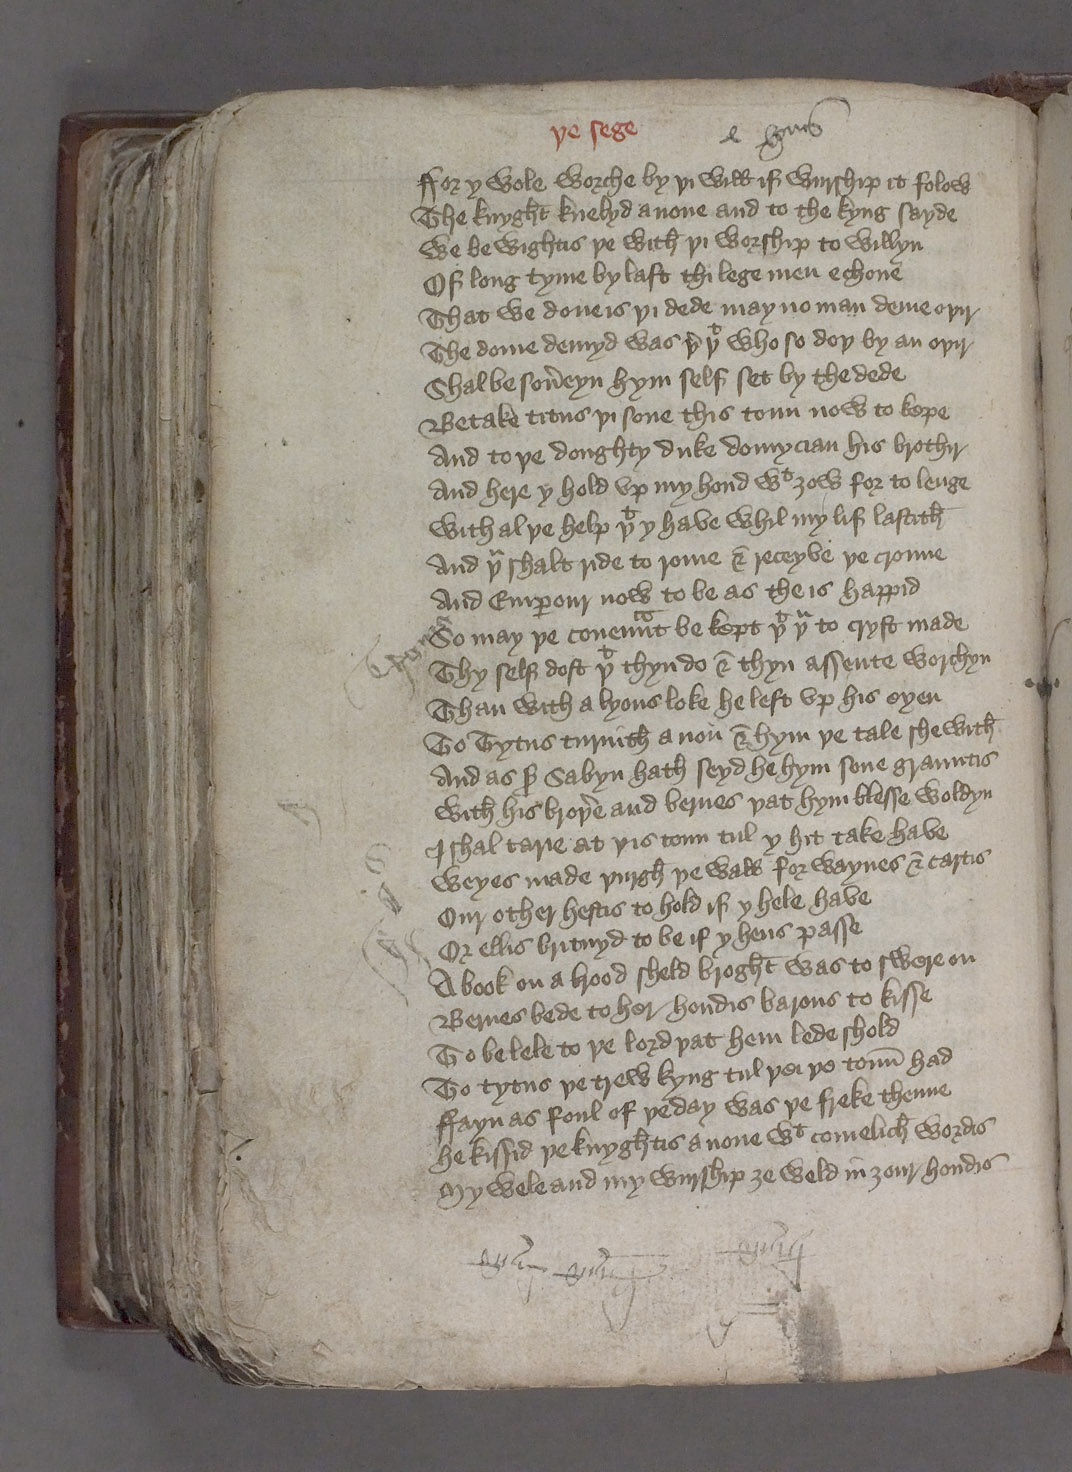 þe sege
ffor y wole worche by þi will if wurship it folow
The knyght knelyd anone and to the kyng sayde
We be wightis þe with þi worship to willyn
Of long tyme bylaft thi lege men echone
That we done is þi dede may no man deme oþir
The dome demyd was þͬ þͭ who so doþ by an oþir
Shal be sou̅eyn hym self set by the dede
Betake titus þi sone this toun now to kepe
And to þe doughty duke domycian his brothir
And here y hold vp my hond wͭ ȝow for to lenge
With al þe help þͭ y have whil my lif lastith
And þͧ shalt ride to rome & receyve þe croune
And Emꝑour now to be as the is happid
So may þe couenᵃnt be kept þͭ þͧ to cryst made
Thy self dost þͭ thyn do & thyn assente worchyn
Than with a lyons loke he left vp his eyen
To Tytus turnith anon & hym þe tale shewith
And as sͬ Sabyn hath seyd he hym sone grauntis
With his broþe̅ and bernes þat hym blesse woldyn
I shal tarie at þis toun tul y hit take have
Weyes made þurgh þe wall for waynes & cartis
Our other hestis to hold if y hele have
Or ellis britnyd to be if y hens passe
A book on a brood sheld broght was to swere on
Bernes bede to her hondis barons to kisse
To be lele to þe lord þat hem lede shold
To tytus þe trew kyng tul þei þo toun̅ had
ffayn as foul of þe day was þe freke thenne
he kissid þe knyghtis anone wͭ comelich wordis
My wele and my wurship ȝe weld in ȝour hondis